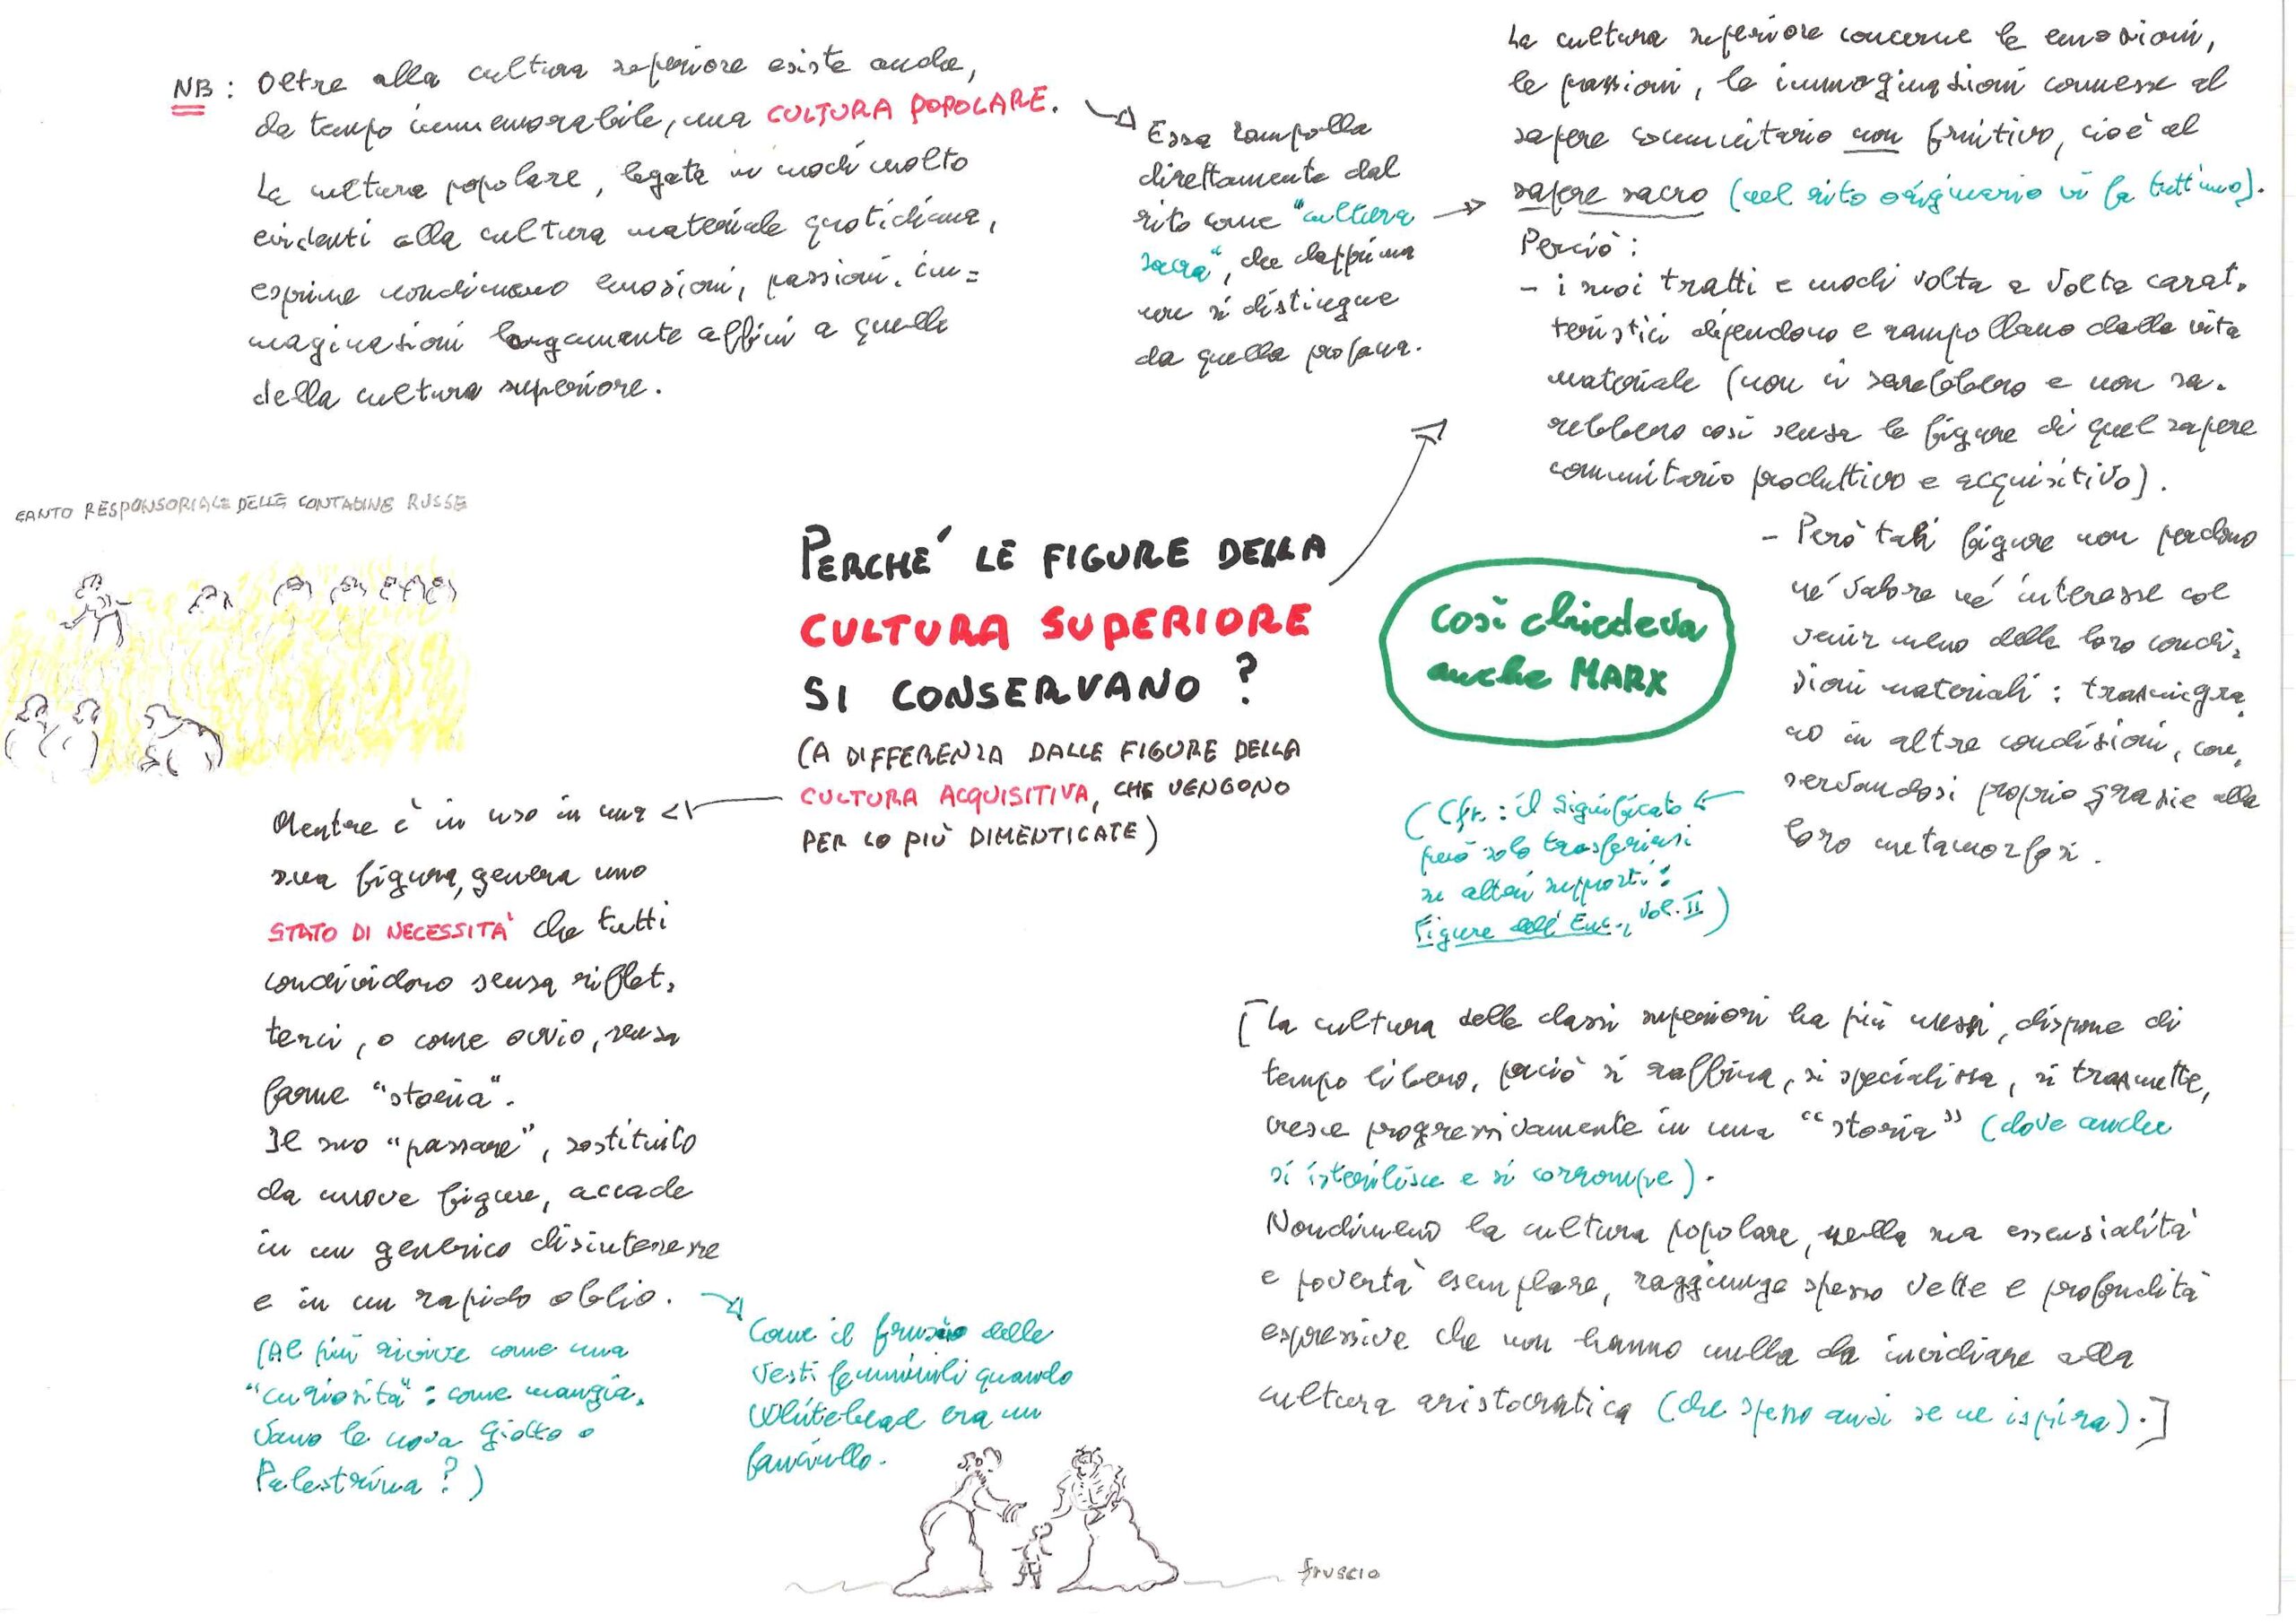 NB: Oltre alla cultura superiore esiste anche,
da tempo immemorabile, una CULTURA POPOLARE.
La cultura popolare, legata in modi molto
evidenti alla cultura materiale quotidiana,
esprime nondimeno emozioni, passioni, im=
maginazioni largamente affini a quelle
della cultura superiore.
Essa rampolla
direttamente dal
rito come "cultura
sacra", che dapprima
non si distingue
da quella profana.
La cultura superiore concerne le emozioni,
le passioni, le immaginazioni connesse al
sapere comunitario non fruitivo, cioè al
sapere sacro (nel rito originario vi fa tutt'uno).
Perciò:
- i suoi tratti e modi volta a volta carat-
teristici dipendono e rampollano dalla vita
materiale (non ci sarebbero e non sa-
rebbero così senza le figure di quel sapere
comunitario produttivo e acquisitivo).
- Però tali figure non perdono
né valore né interesse col
venir meno delle loro condi-
zioni materiali: trasmigra-
no in altre condizioni, con-
servandosi proprio grazie alla
loro metamorfosi.
CANTO RESPONSORIALE DELLE CONTADINE RUSSE
PERCHE' LE FIGURE DELLA
CULTURA SUPERIORE
SI CONSERVANO?
(A DIFFERENZA DALLE FIGURE DELLA
CULTURA ACQUISITIVA, CHE VENGONO
PER LO PIÙ DIMENTICATE)
Così chiedeva
anche MARX
(Cfr.: il significato
può solo trasferirsi
su altri supporti:
Figure dell'Enc., Vol. II)
Mentre è in uso in una
sua figura, genera uno
STATO DI NECESSITÀ che tutti
condividono senza riflet-
terci, o come ovvio, senza
farne "storia".
Il suo "passare", sostituito
da nuove figure, accade
in un generico disinteresse
e in un rapido oblio.
(Al più rivive come una
"curiosità": come mangia-
vano le uova Giotto o
Palestrina?)
Come il fruscio delle
vesti femminili quando
Whitehead era un
fanciullo.
fruscio
[La cultura delle classi superiori ha più mezzi, dispone di
tempo libero, perciò si raffina, si specializza, si trasmette,
cresce progressivamente in una "storia" (dove anche
si isterilisce e si corrompe).
Nondimeno la cultura popolare, nella sua essenzialità
e povertà esemplare, raggiunge spesso vette e profondità
espressive che non hanno nulla da invidiare alla
cultura aristocratica (che spesso anzi se ne ispira).]